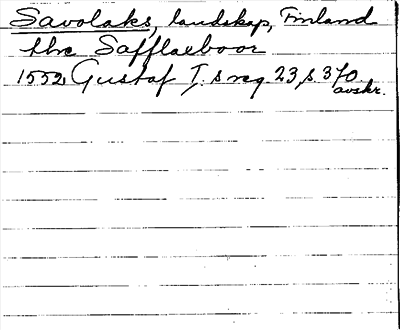 Savolaks, landskap, Finland
thre Safflaeboor
1552 Gustaf I.s reg 23, s. 370
avskr.